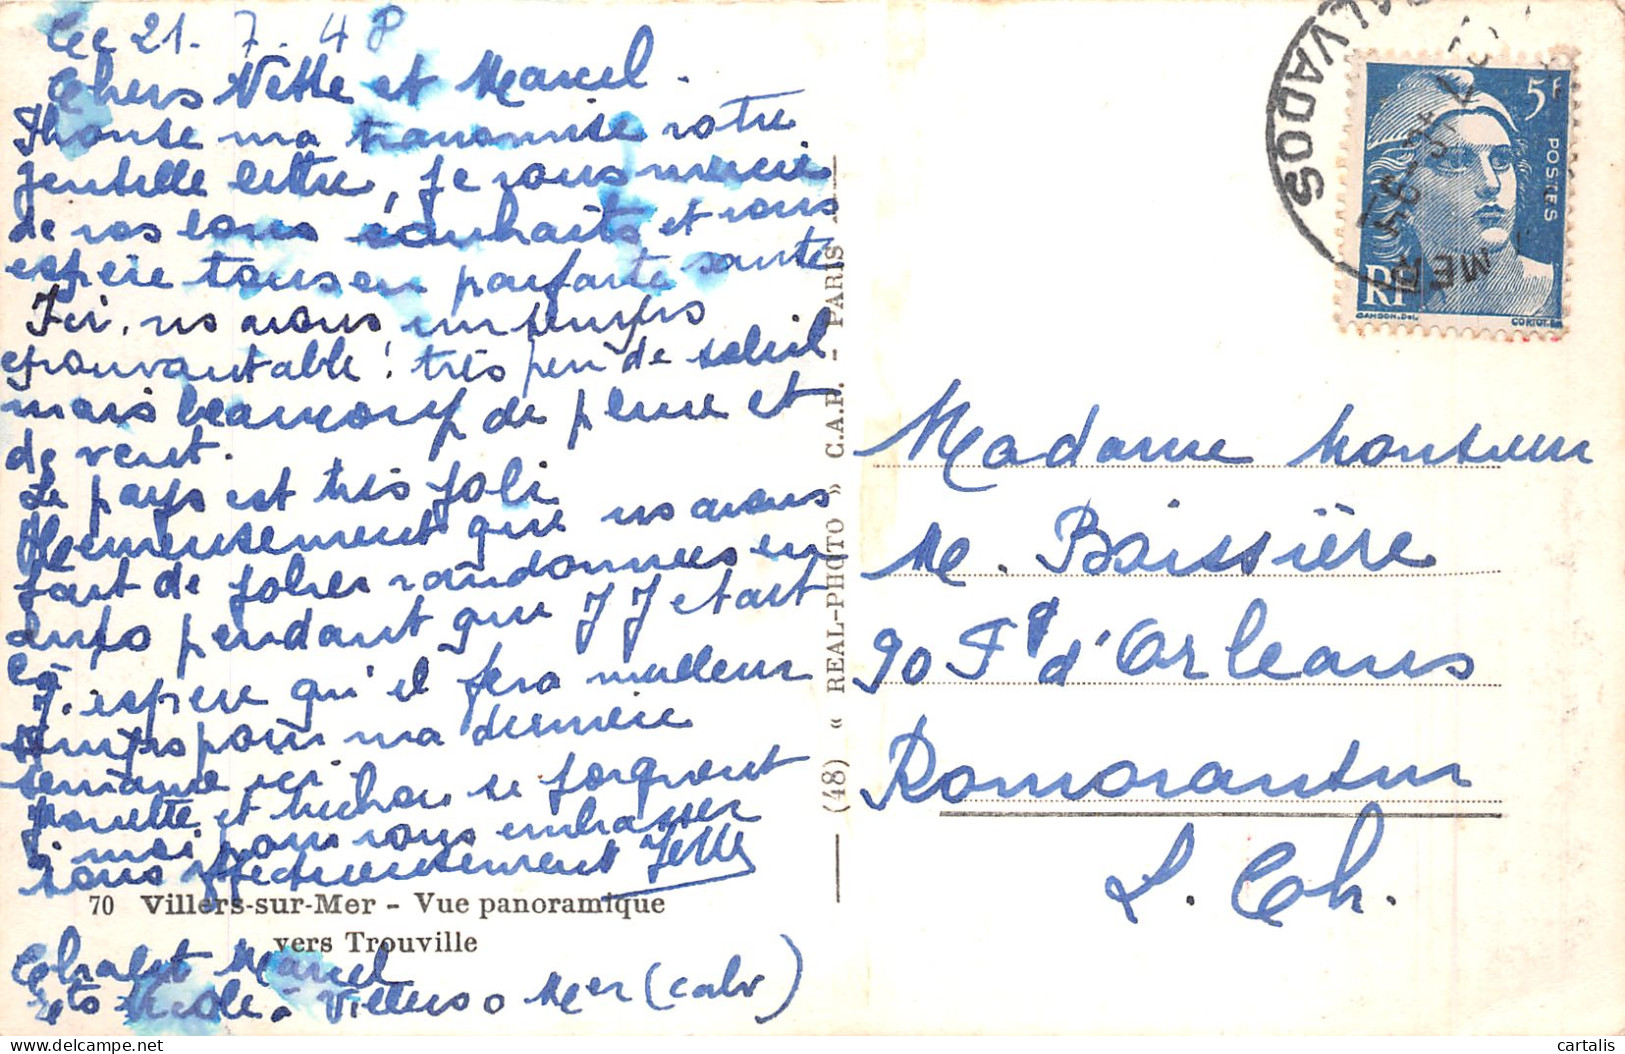 Le 21. 7. 48
Chers Nette et Marcel.
ma transmise votre
gentille lettre, je vous remercie
de vos bons souhaits et vous
espère tous en parfaite santé
Ici, ns avons un temps
épouvantable ! très peu de soleil
mais beaucoup de pluie et
de vent.
Le pays est très joli
Heureusement que ns avons
fait de jolies randonnées en
auto pendant que JJ etait
là
J'espère qu'il fera meilleur
temps pour ma dernière
semaine ici.
et se joignent
à moi pour vous embrasser
tous affectueusement
70 Villers-sur-Mer - Vue panoramique
vers Trouville
Chalet Marcel
à Villers s Mer (calv)
(48) « REAL-PHOTO » C.A.P. - PARIS
CALVADOS
MER
5F
POSTES
RF
GANDON.Del.
CORTOT.
Madame Monsieur
M. Boissière
90 Fg d'Orleans
Romorantin
L. Ch.
cartalis
delcampe.net